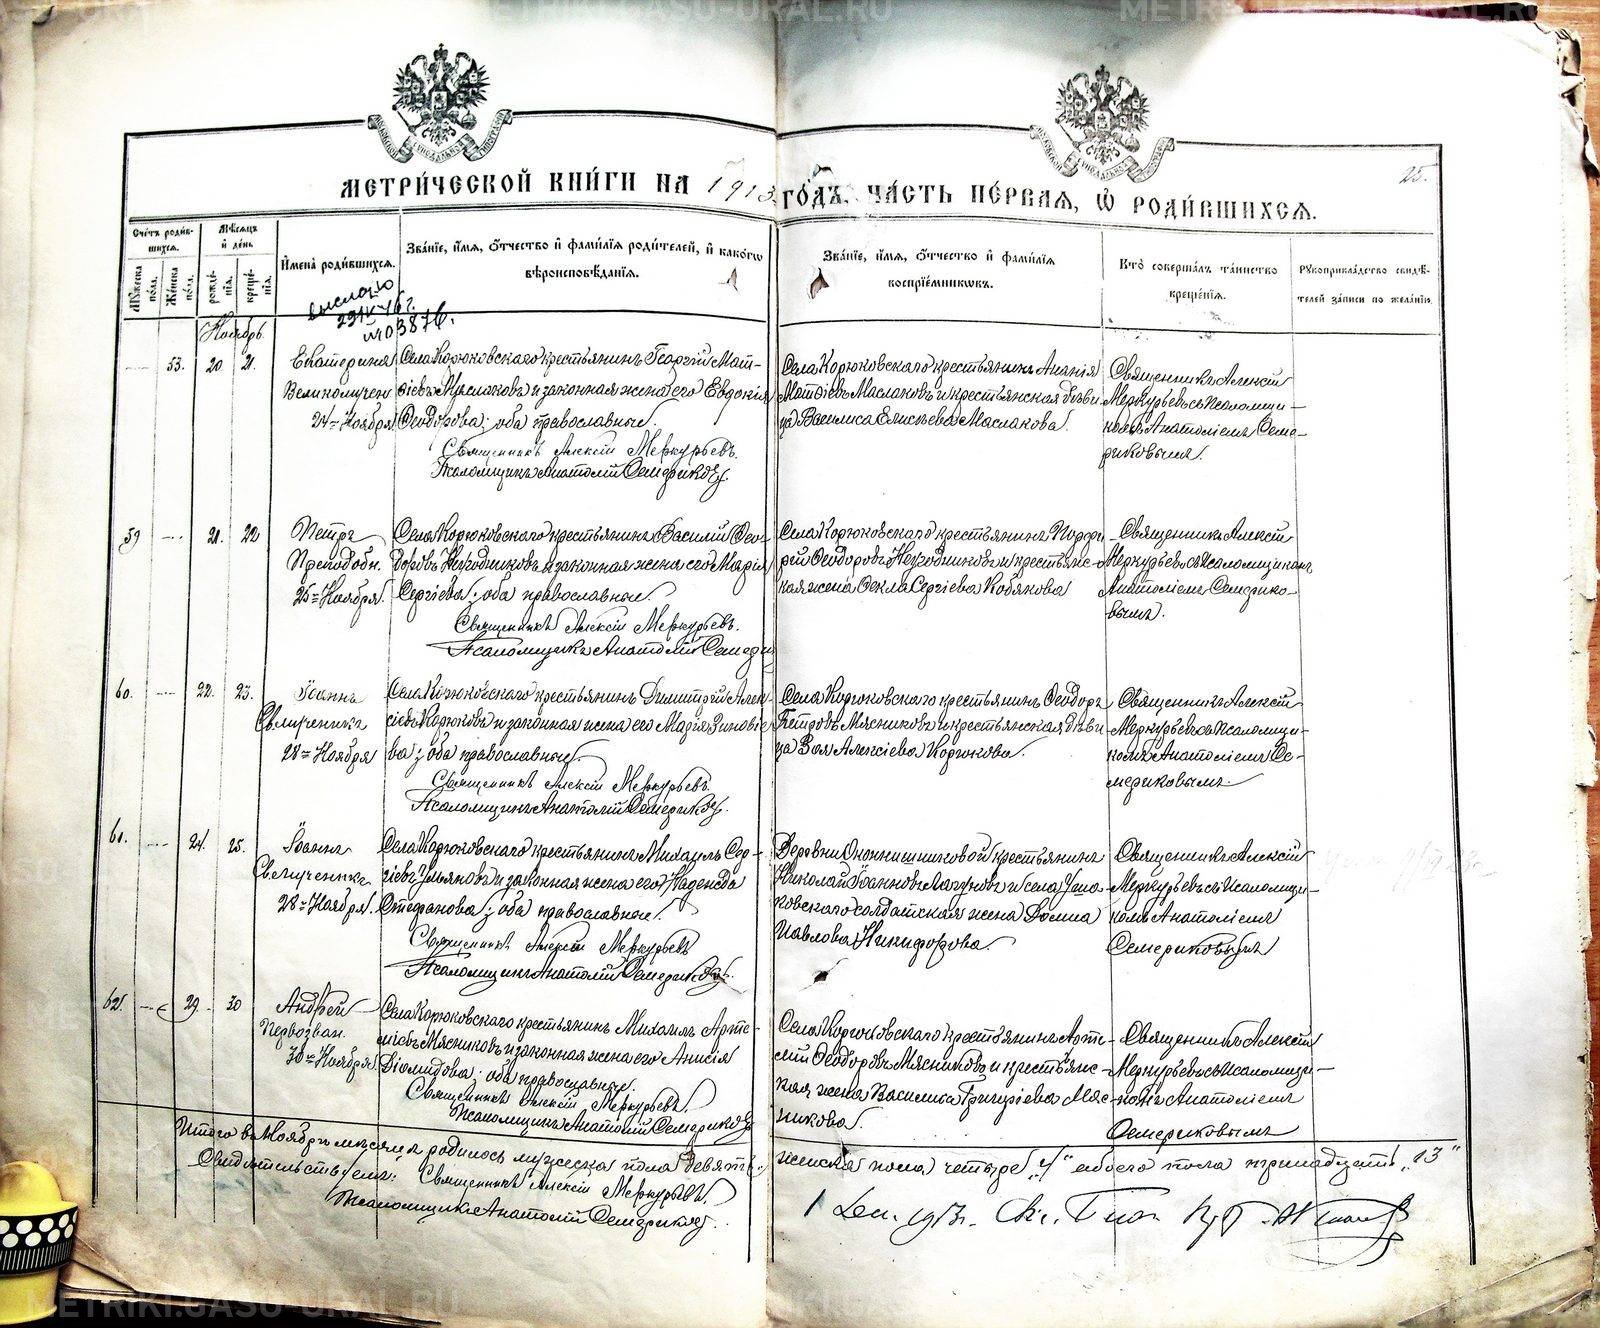 METRIKI.GASU-URAL.RU
METRIKI.GASU-URAL.RU
МЕТРИ́ЧЕСКОЙ КНИ́ГИ НА 1913 ГО́ДЪ. ЧА́СТЬ ПЕ́РВАЯ, Ѡ҆ РОДИ́ВШИХСЯ.
25.
Сче́тъ роди́вшихся.
Му́жеска по́ла.
Же́нска по́ла.
Мѣ́сяцъ и де́нь
рожде́нїя.
креще́нїя.
И҆мена̀ роди́вшихся.
Зва́нїе, и҆́мя, ѻ҆́тчество и҆ фами́лїя роди́телей, и҆ како́гѡ вѣроисповѣ́данїя.
Зва́нїе, и҆́мя, ѻ҆́тчество и҆ фами́лїя воспрїе́мникѡвъ.
Кто̀ соверша́лъ та́инство креще́нїя.
Рꙋкоприкла́дство свидѣ́телей за́писи по жела́нїю.
Ноябрь
53. 20. 21.
Екатерина
Великомучен
24го Ноября
Села Корюковскаго крестьянинъ Георгій Мат-
ѳіевъ Маслаковъ и законная жена его Евдокія
Ѳеодорова; оба православные.
Священникъ Алексій Меркурьевъ.
Псаломщикъ Анатолій Семериковъ.
Села Корюковскаго крестьянинъ Ананія
Матѳіевъ Маслаковъ и крестьянская дѣви-
ца Василиса Елисѣева Маслакова.
Священникъ Алексій
Меркурьевъ съ псаломщи-
комъ Анатоліемъ Семе-
риковымъ.
59 21. 22
Петръ
Преподобн.
25го Ноября.
Села Корюковскаго крестьянинъ Василій Ѳео-
доровъ Негодниковъ и законная жена его Марія
Сергіева; оба православные.
Священникъ Алексій Меркурьевъ.
Псаломщикъ Анатолій Семери
Села Корюковскаго крестьянинъ Порфи-
рій Ѳеодоровъ Негодниковъ и крестьянс-
кая жена Ѳекла Сергіева Кобякова
Священникъ Алексій
Меркурьевъ съ псаломщикомъ
Анатоліемъ Семерико-
вымъ.
60. 22. 23.
Іоаннъ
28го Ноября
Села Корюковскаго крестьянинъ Димитрій Алек-
сіевъ Корюковъ и законная жена его Марія Зиновіе-
ва; оба православные.
Священникъ Алексій Меркурьевъ.
Псаломщикъ Анатолій Семериковъ.
Села Корюковскаго крестьянинъ Ѳеодоръ
Петровъ Мясниковъ и крестьянская дѣви-
ца Зоя Алексіева Корюкова.
Священникъ Алексій
Меркурьевъ съ псаломщи-
комъ Анатоліемъ Се-
мериковымъ.
61. 24. 25.
Іоаннъ
28го Ноября.
Села Корюковскаго крестьянинъ Михаилъ Сер-
гіевъ Ульяновъ и законная жена его Надежда
Стефанова; оба православные.
Священникъ Алексій Меркурьевъ
Псаломщикъ Анатолій Семериковъ.
Деревни крестьянинъ
Николай Іоанновъ и села
солдатская жена
Павлова Никифорова.
Священникъ Алексій
Меркурьевъ съ псаломщи-
комъ Анатоліемъ
Семериковымъ
62. 29. 30
Андрей
Первозван.
30го Ноября.
Села Корюковскаго крестьянинъ Михаилъ Арте-
міевъ Мясниковъ и законная жена его Анисія
Діомидова; оба православные.
Священникъ Алексій Меркурьевъ.
Псаломщикъ Анатолій Семериковъ
Села Корюковскаго крестьянинъ Арте-
мій Ѳеодоровъ Мясниковъ и крестьянс-
кая жена Василиса Григоріева Мяс-
никова.
Священникъ Алексій
Меркурьевъ съ псаломщи-
комъ Анатоліемъ
Семериковымъ
Итого въ Ноябрѣ мѣсяцѣ родилось мужеска пола девять,
женска пола четыре „4“ обоего пола тринадцать „13“
Свидѣтельствуемъ: Священникъ Алексій Меркурьевъ.
Псаломщикъ Анатолій Семериковъ.
1 Дек. 1913 г.
METRIKI.GASU-URAL.RU
METRIKI.GASU-URAL.RU